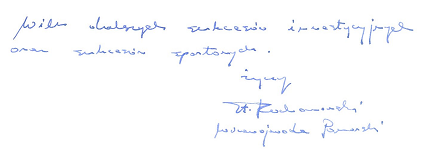 Wielu dalszych sukcesów inwestycyjnych
oraz sukcesów sportowych.
życzy
Wicewojewoda Pomorski